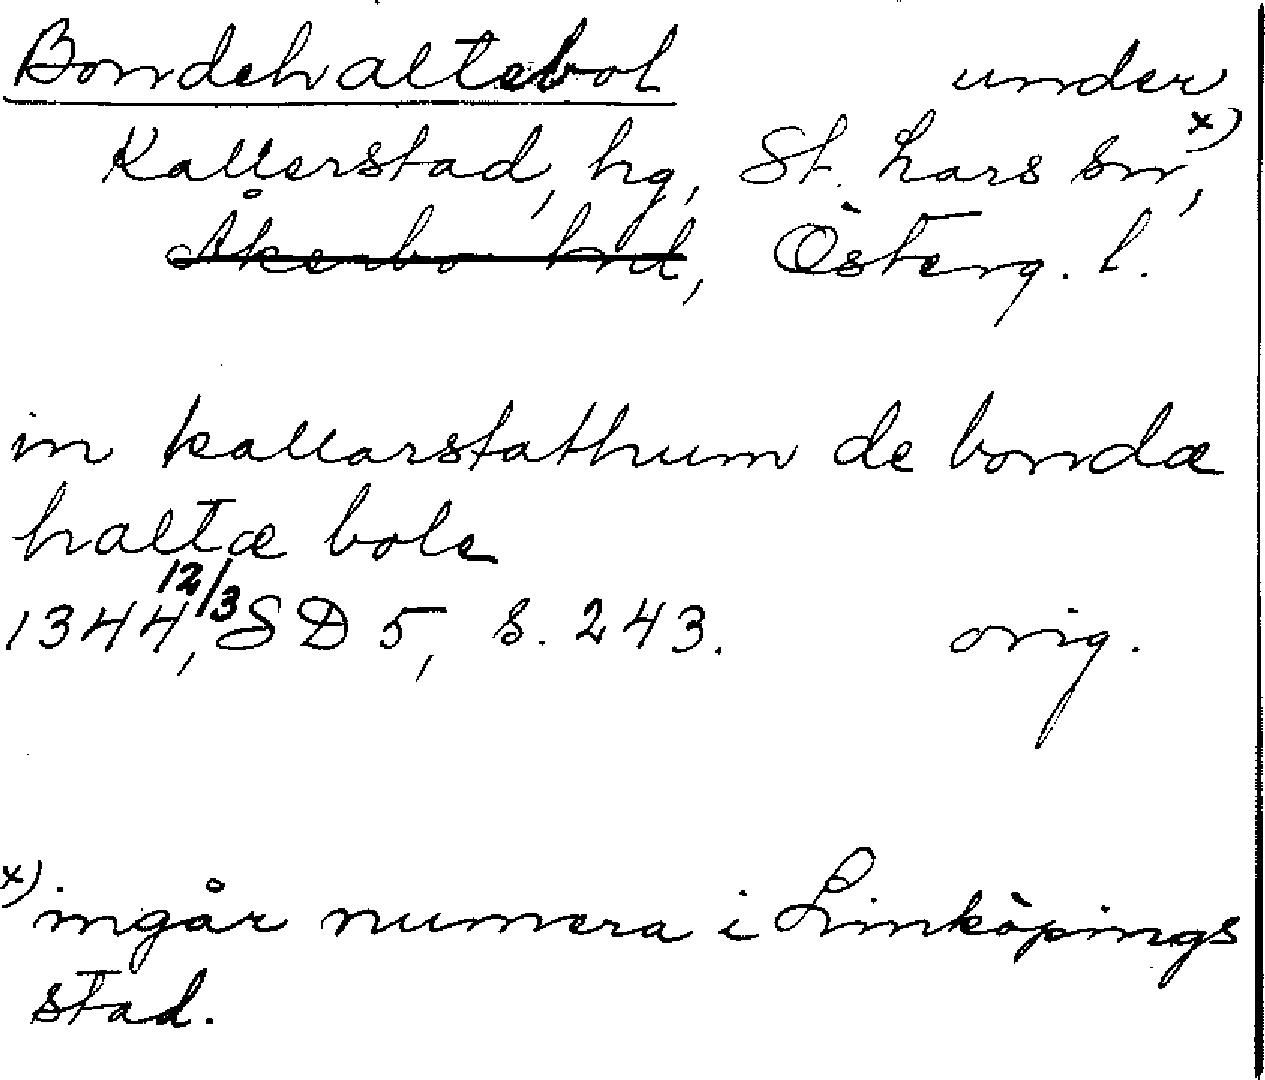 Bondehaltebol under
Kallerstad, hg, St. Lars sn, x)
Åkerbo hrd, Österg. l.
in kallarstathum de bondæ
haltæ bole
1344 12/3, SD 5, s. 243. orig.
x) ingår numera i Linköpings
stad.